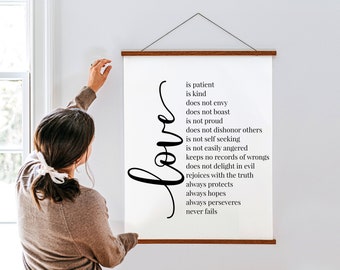 love
is patient
is kind
does not envy
does not boast
is not proud
does not dishonor others
is not self seeking
is not easily angered
keeps no records of wrongs
does not delight in evil
rejoices with the truth
always protects
always hopes
always perseveres
never fails